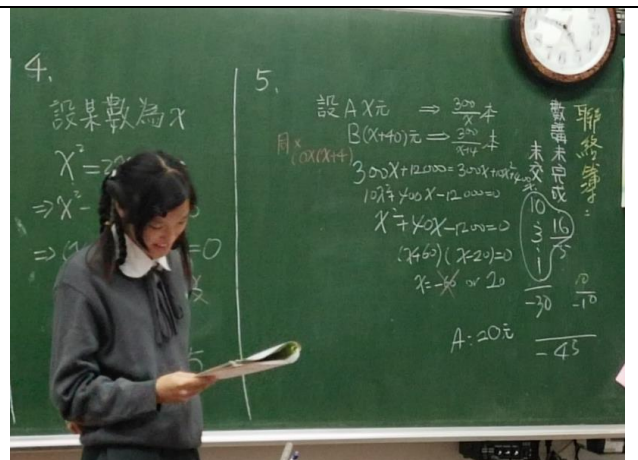 4.
設某數為x
x²=2
⇒x²-
=0
5.
設A x元 ⇒ 300/x 本
B(x+40)元 ⇒ 本
同×
300x+12000=300x+10x²+400x
10x²+400x-12000=0
x²+40x-1200=0
(x+60)(x-20)=0
x=-60 or 20
A:20元
聯絡簿:
數講未完成
16
5
未交
10
3
1
-30
-10
-45